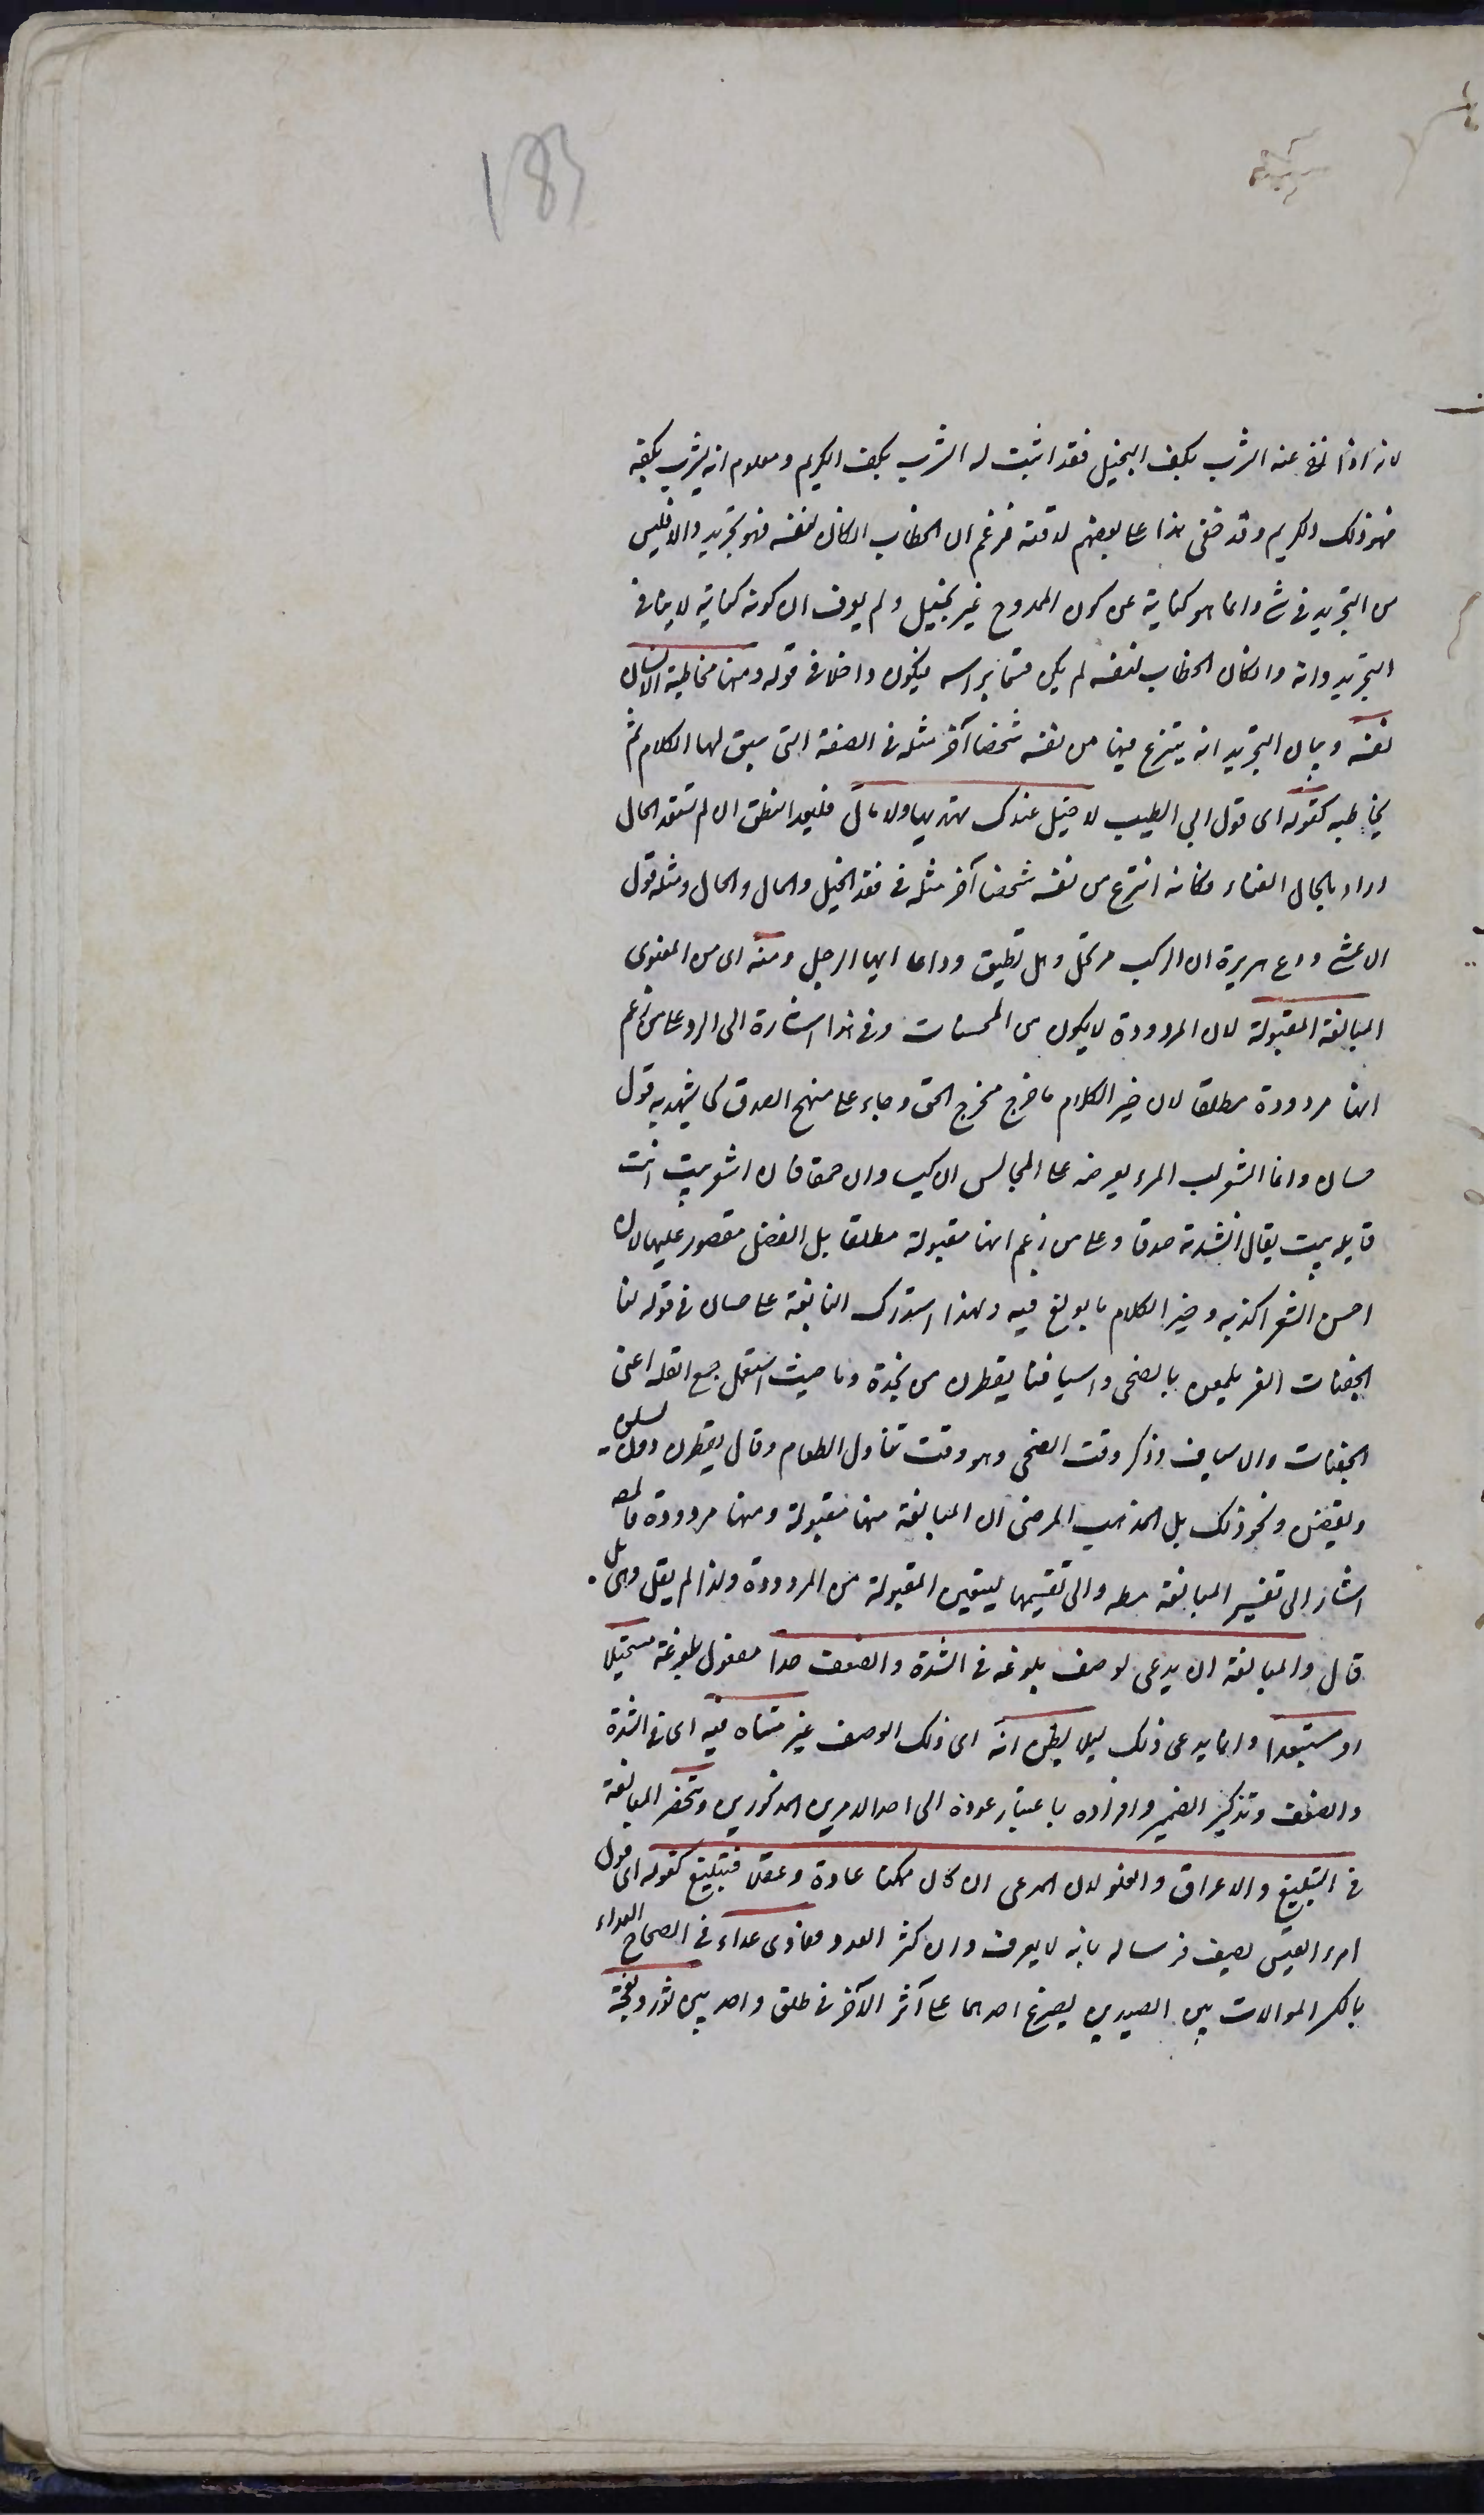 183
لانه اذا نفى عنه الشرب بكف البخيل فقد اثبت له الشرب بكف الكريم ومعلوم انه يشرب بكفه
فهو ذلك الكريم وقد خفى هذا على بعضهم لدقته فزعم ان الخطاب ان كان لنفسه فهو تجريد والا فليس
من التجريد فى شئ وانما هو كناية عن كون الممدوح غير بخيل ولم يعرف ان كونه كناية لا ينافى
التجريد وانه وان كان الخطاب لنفسه لم يكن قسما براسه فيكون داخلا فى قوله ومنها مخاطبة الانسان
نفسه وبيان التجريد انه ينتزع فيها من نفسه شخصا آخر مثله فى الصفة التى سيق لها الكلام ثم
يخاطبه كقوله اى قول ابى الطيب لا خيل عندك تهديها ولا مال فليعد النطق ان لم تسعد الحال
اراد بالحال الغناء فكانه انتزع من نفسه شخصا آخر مثله فى فقد الخيل والمال والحال ومثله قول
الاعشى ودع هريرة ان الركب مرتحل وهل تطيق وداعا ايها الرجل ومنه اى من المعنوى
المبالغة المقبولة لان المردودة لا يكون من المحسنات وفى هذا اشارة الى الرد على من زعم
انها مردودة مطلقا لان خير الكلام ما خرج مخرج الحق وجاء على منهج الصدق كما يشهد به قول
حسان وانما الشعر لب المرء يعرضه على المجالس ان كيسا وان حمقا فان اشعر بيت انت
قايله بيت يقال اذا انشدته صدقا وعلى من زعم انها مقبولة مطلقا بل الفضل مقصور عليها لان
احسن الشعر اكذبه وخير الكلام ما بولغ فيه ولهذا استدرك النابغة على حسان فى قوله لنا
الجفنات الغر يلمعن بالضحى واسيافنا يقطرن من نجدة دما حيث استعمل جمع القلة اعنى
الجفنات والاسياف وذكر وقت الضحى وهو وقت تناول الطعام وقال يقطرن دون يسلن
ويفضن ونحو ذلك بل المذهب المرضى ان المبالغة منها مقبولة ومنها مردودة فالمصـ
اشار الى تفسير المبالغة مطـ والى تقسيمها ليتعين المقبولة من المردودة ولذا لم يقل وهى بل
قال والمبالغة ان يدعى لوصف بلوغه فى الشدة والضعف حدا مفعول بلوغه مستحيلا
او مستبعدا وانما يدعى ذلك ليلا يظن انه اى ذلك الوصف غير متناه فيه اى فى الشدة
والضعف وتذكير الضمير وافراده باعتبار عوده الى احد الامرين المذكورين وتنحصر المبالغة
فى التبليغ والاغراق والغلو لان المدعى ان كان ممكنا عادة وعقلا فتبليغ كقوله اى قول
امرء القيس يصف فرسا له بانه لا يعرق وان كثر العدو فعادى عداء فى الصحاح العداء
بالكسر الموالات بين الصيدين يصرع احدهما على آثر الآخر فى طلق واحد بين ثور ونعجة